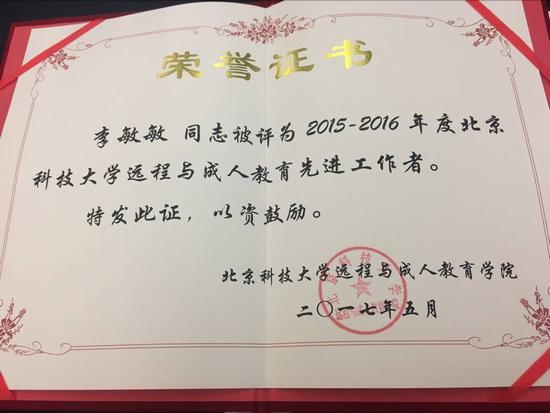 荣誉证书
李敏敏 同志被评为 2015-2016 年度北京
科技大学远程与成人教育先进工作者。
特发此证，以资鼓励。
北京科技大学远程与成人教育学院
二〇一七年五月